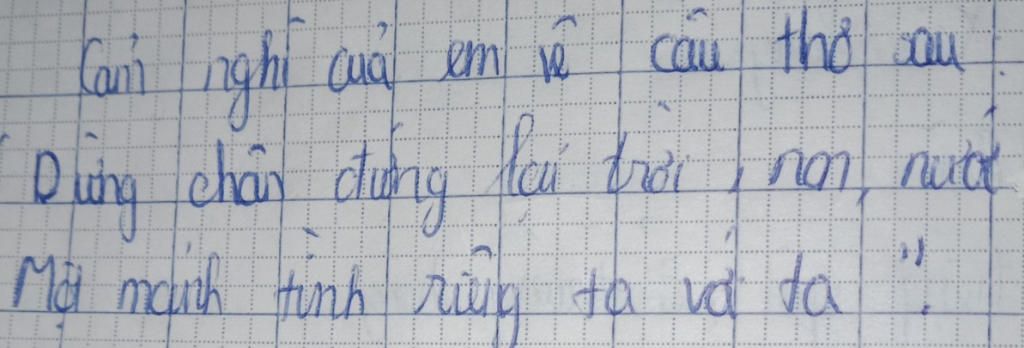 Cảm nghĩ của em về câu thơ sau:
"Dừng chân đứng lại trời, non, nước
Một mảnh tình riêng ta với ta".